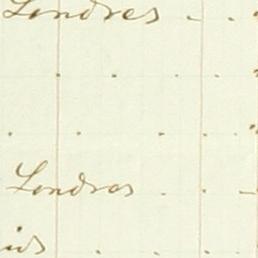 Londres
Londres